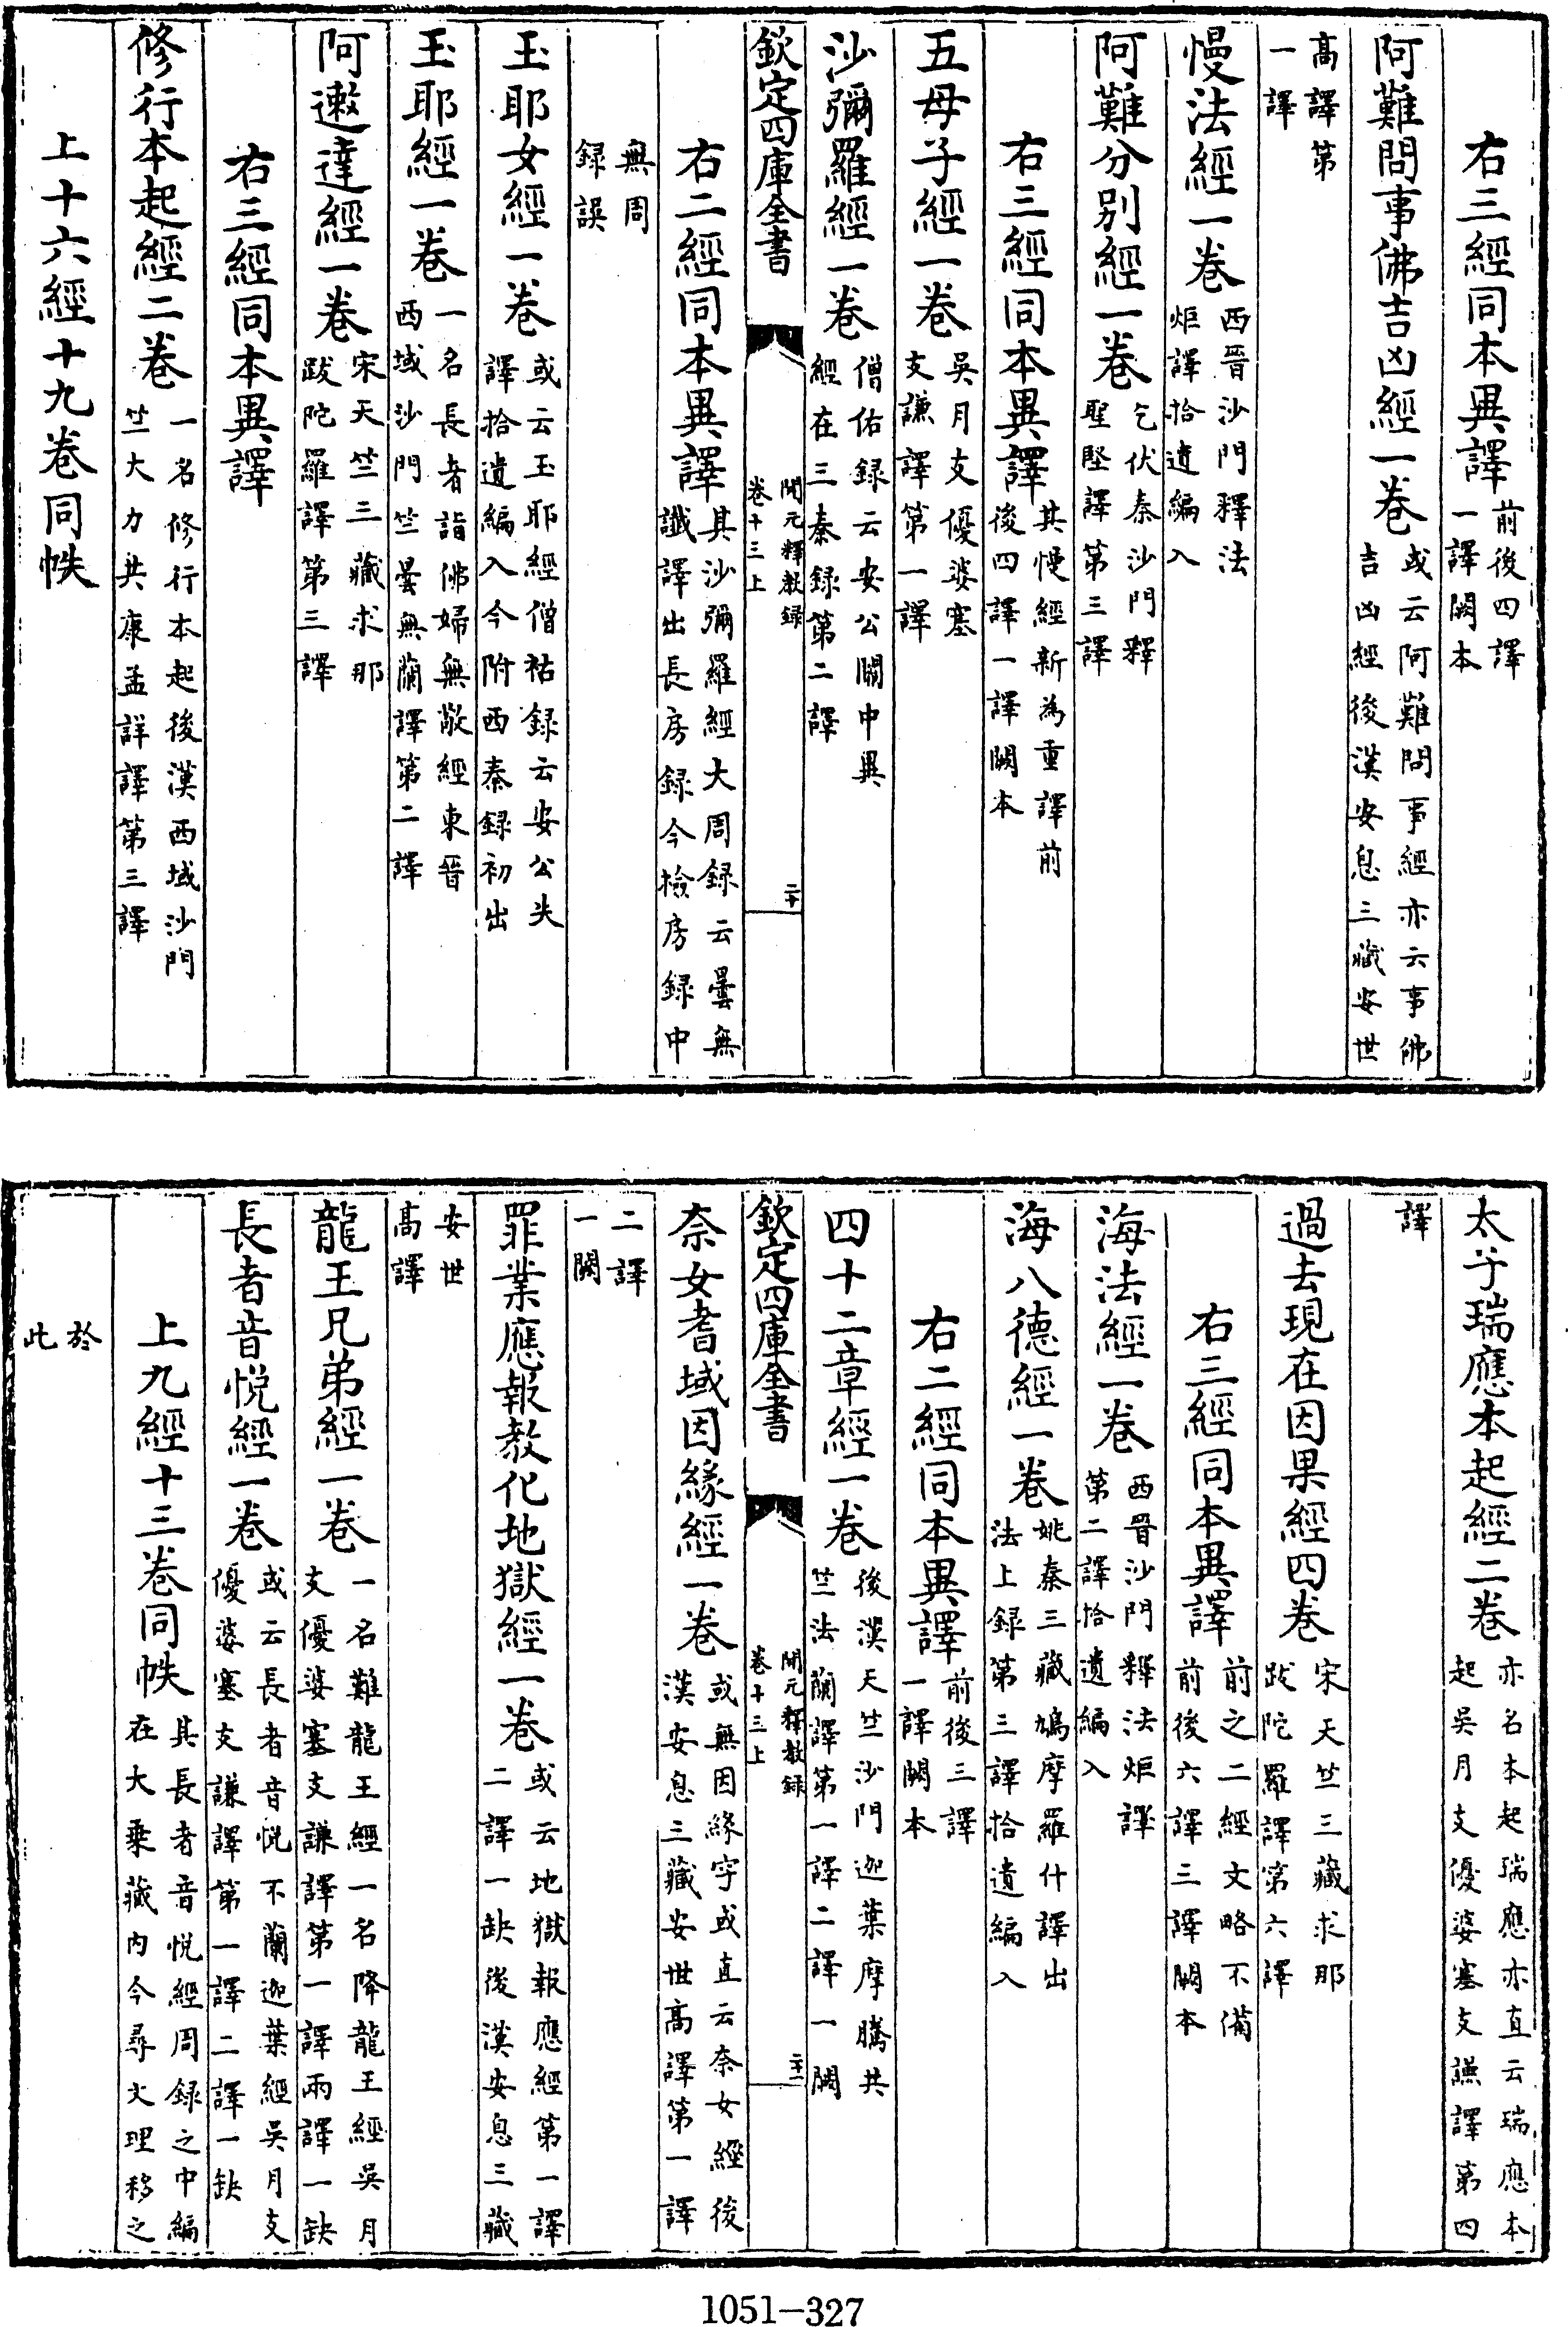 右三經同本異譯前後四譯一譯闕本
阿難問事佛吉凶經一卷或云阿難問事經亦云事佛吉凶經後漢安息三藏安世
高譯第一譯
慢法經一卷西晉沙門釋法炬譯拾遺編入
阿難分别經一卷乞伏秦沙門釋聖堅譯第三譯
右三經同本異譯其慢經新為重譯前後四譯一譯闕本
五母子經一卷吳月支優婆塞支謙譯第一譯
沙彌羅經一卷僧佑録云安公關中異經在三秦録第二譯
欽定四庫全書 開元釋教録卷十三上 二十
右二經同本異譯其沙彌羅經大周録云曇無讖譯出長房録今檢房録中
無周録誤
玉耶女經一卷或云玉耶經僧祐録云安公失譯拾遺編入今附西秦録初出
玉耶經一卷一名長者詣佛婦無敬經東晉西域沙門竺曇無蘭譯第二譯
阿遬達經一卷宋天竺三藏求那跋陀羅譯第三譯
右三經同本異譯
修行本起經二卷一名修行本起後漢西域沙門竺大力共康孟詳譯第三譯
上十六經十九卷同帙
太子瑞應本起經二卷亦名本起瑞應亦直云瑞應本起吳月支優婆塞支謙譯第四
譯
過去現在因果經四卷宋天竺三藏求那跋陀羅譯第六譯
右三經同本異譯前之二經文略不備前後六譯三譯闕本
海法經一卷西晉沙門釋法炬譯第二譯拾遺編入
海八德經一卷姚秦三藏鳩摩羅什譯出法上録第三譯拾遺編入
右二經同本異譯前後三譯一譯闕本
四十二章經一卷後漢天竺沙門迦葉摩騰共竺法蘭譯第一譯二譯一闕
欽定四庫全書 開元釋教録卷十三上 二十一
奈女耆域因緣經一卷或無因緣字或直云奈女經後漢安息三藏安世高譯第一譯
二譯一闕
罪業應報教化地獄經一卷或云地獄報應經第一譯二譯一缺後漢安息三藏
安世高譯
龍王兄弟經一卷一名難龍王經一名降龍王經吳月支優婆塞支謙譯第一譯兩譯一缺
長者音悦經一卷或云長者音悦不蘭迦葉經吳月支優婆塞支謙譯第一譯二譯一缺
上九經十三卷同帙其長者音悦經周録之中編在大乘藏内今尋文理移之
於此
1051-327